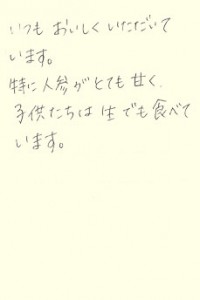 いつもおいしくいただいて
います。
特に人参がとても甘く、
子供たちは生でも食べて
います。